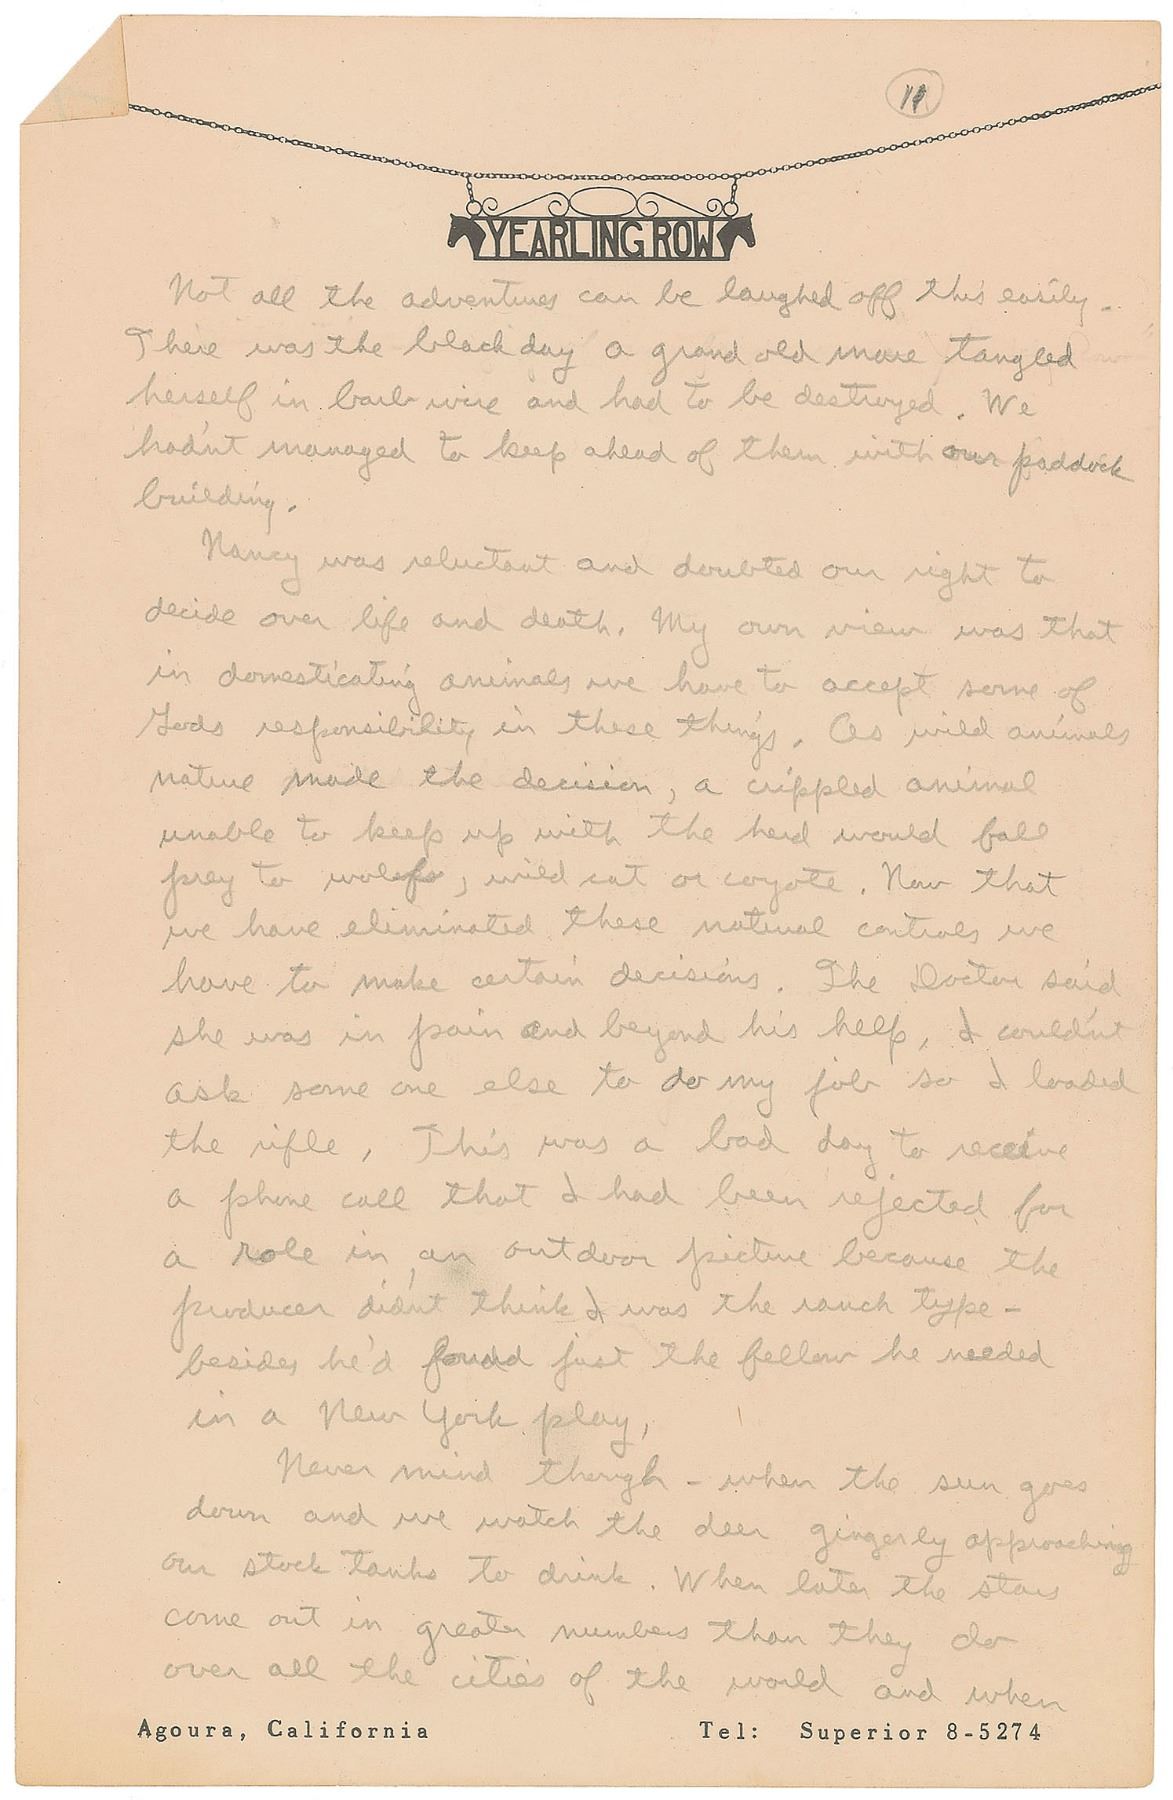 11
YEARLING ROW
Not all the adventures can be laughed off this easily -
There was the black day a grand old mare tangled
herself in barb wire and had to be destroyed. We
hadn't managed to keep ahead of them with our paddock
building.
Nancy was reluctant and doubted our right to
decide over life and death. My own view was that
in domesticating animals we have to accept some of
Gods responsibility in these things. As wild animals
nature made the decision, a crippled animal
unable to keep up with the herd would fall
prey to wolfs, wild cat or coyote. Now that
we have eliminated these natural controls we
have to make certain decisions. The Doctor said
she was in pain and beyond his help, I couldn't
ask some one else to do my job so I loaded
the rifle, This was a bad day to receive
a phone call that I had been rejected for
a role in an outdoor picture because the
producer didn't think I was the ranch type -
besides he'd found just the fellow he needed
in a New York play,
Never mind though - when the sun goes
down and we watch the deer gingerly approaching
our stock tanks to drink. When later the stars
come out in greater numbers than they do
over all the cities of the world and when
Agoura, California Tel: Superior 8-5274